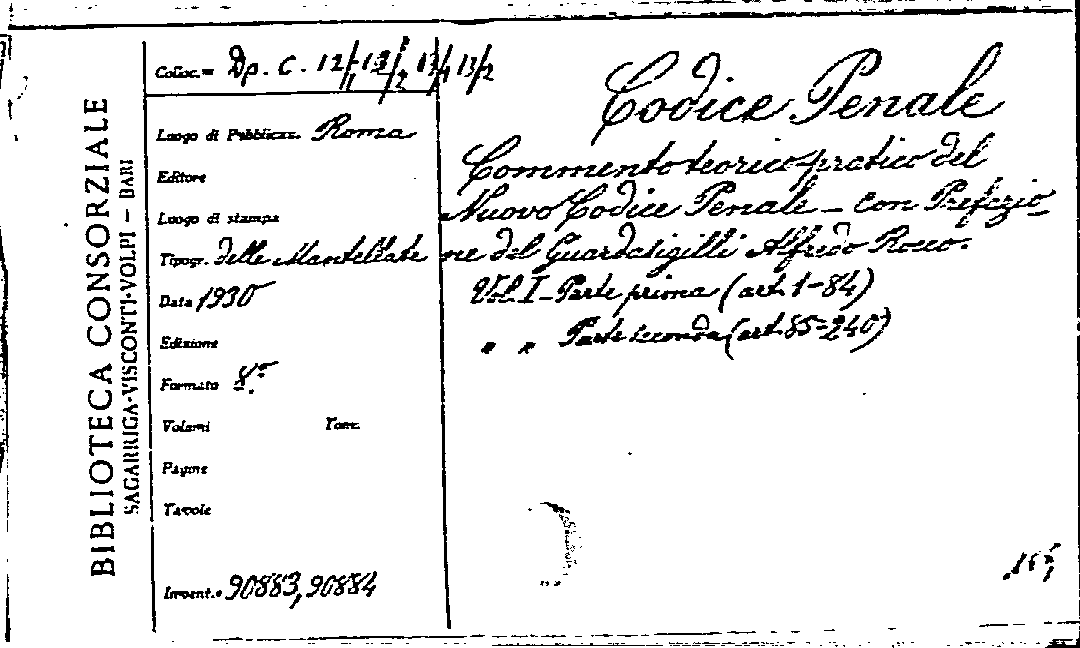 BIBLIOTECA CONSORZIALE
SAGARRIGA-VISCONTI-VOLPI - BARI
Colloc. = Dp. C. 12/1 12/2 13/1 13/2
Luogo di Pubblicaz. Roma
Editore
Luogo di stampa
Tipogr. delle Mantellate
Data 1930
Edizione
Formato 8.°
Volumi Tom.
Pagine
Tavole
Invent. 90883, 90884
Codice Penale
Commento teorico pratico del
Nuovo Codice Penale - con Prefazio-
ne del Guardasigilli Alfredo Rocco.
Vol. I - Parte prima (art. 1-84)
" " Parte seconda (art. 85-240)